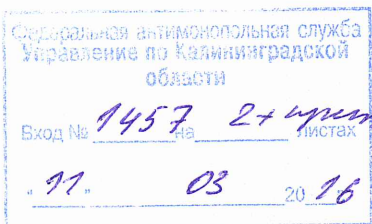 Федеральная антимонопольная служба
Управление по Калининградской
области
Вход № 1457 на 2+ листах
"11" 03 2016